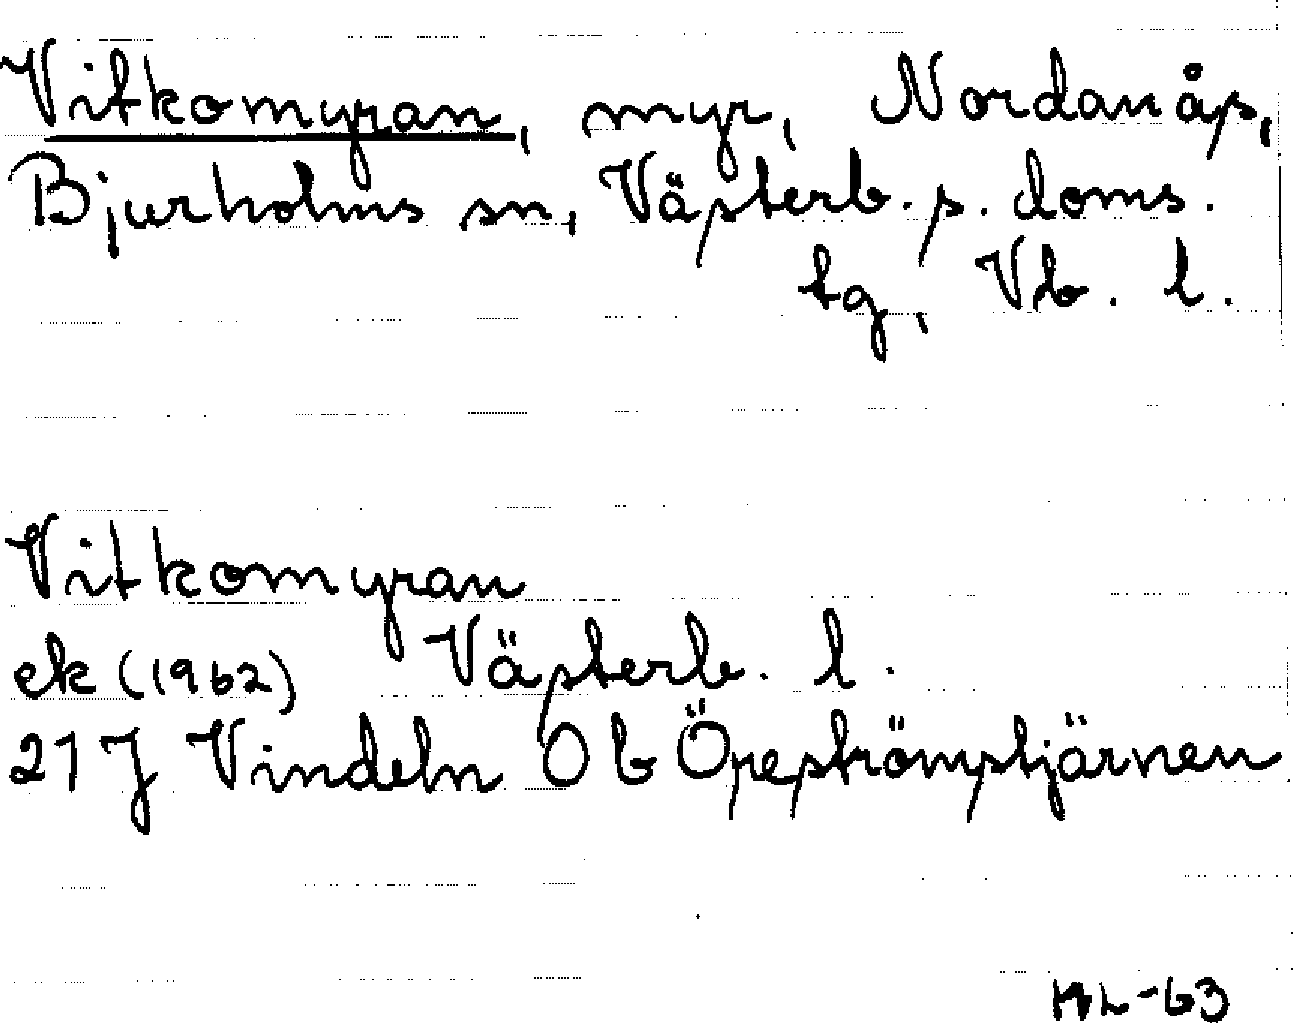 Vitkomyran, myr, Nordanås,
Bjurholms sn, Västerb. s. doms.
tg, Vb. l.
Vitkomyran
ek (1962) Västerb. l.
21 J Vindeln 0 b Öreströmstjärnen
-63